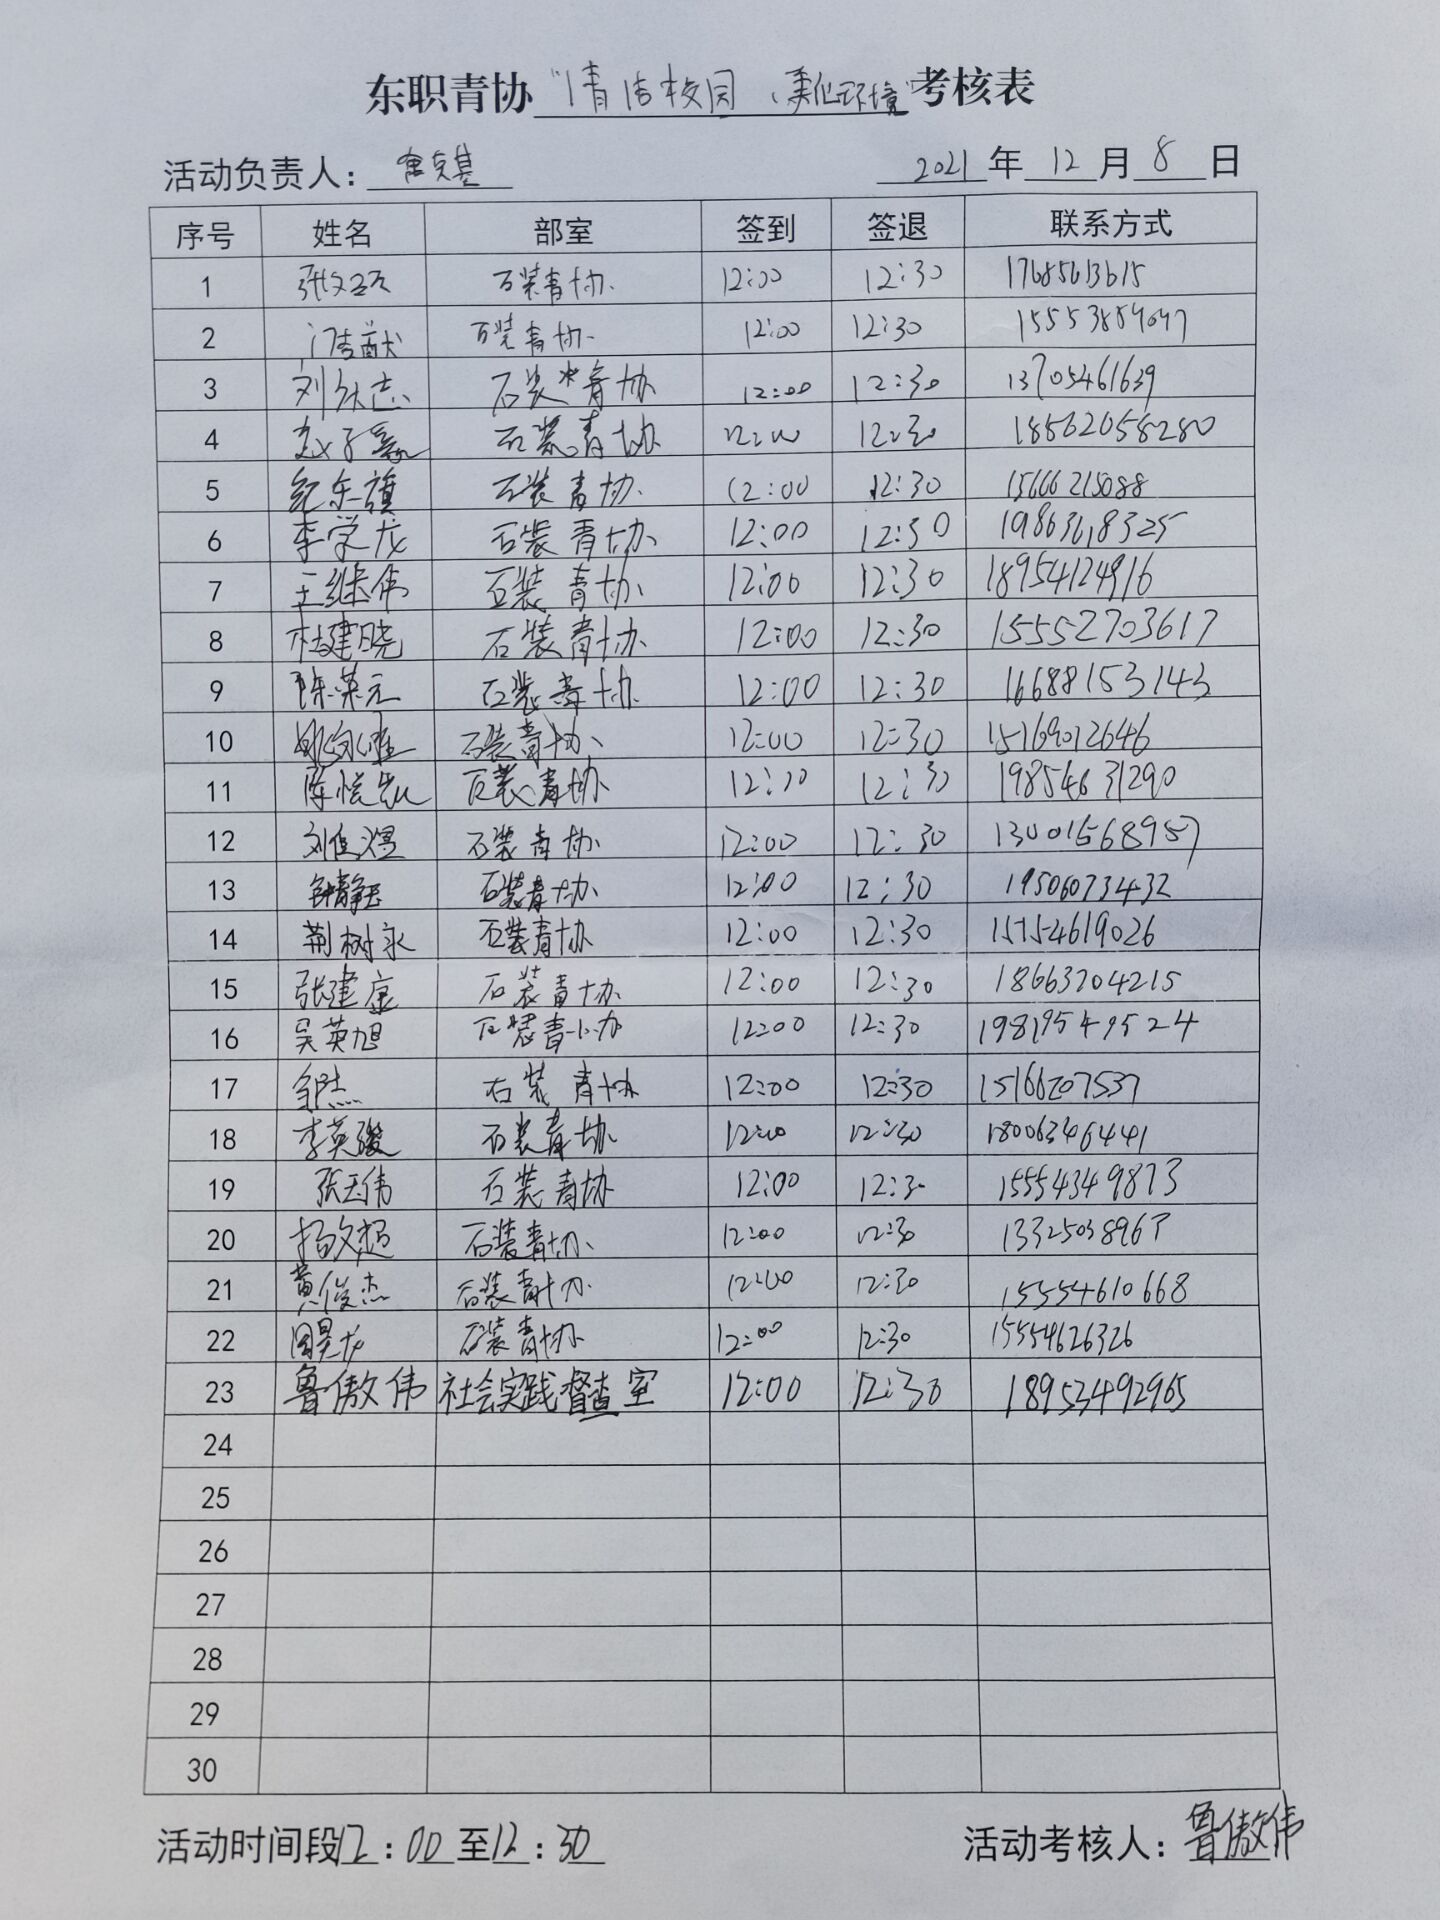 东职青协“清洁校园、美化环境”考核表
活动负责人： 2021年12月8日
序号 姓名 部室 签到 签退 联系方式
1 石装青协 12:00 12:30 17685613615
2 石装青协 12:00 12:30
3 石装青协 12:00 12:30 13705461639
4 石装青协 12:00 12:30 18562058280
5 纪东旗 石装青协 12:00 12:30 15666215088
6 李学龙 石装青协 12:00 12:30 19863618325
7 王继伟 石装青协 12:00 12:30 18954124916
8 杜建晓 石装青协 12:00 12:30 15552703617
9 陈荣元 石装青协 12:00 12:30 16688153143
10 石装青协 12:00 12:30 15169012646
11 石装青协 12:00 12:30 19854631290
12 刘俊煜 石装青协 12:00 12:30 13001568957
13 钟静钰 石装青协 12:00 12:30 19506073432
14 荆树永 石装青协 12:00 12:30 15754619026
15 张建康 石装青协 12:00 12:30 18663704215
16 吴英旭 石装青协 12:00 12:30 19819549524
17 石装青协 12:00 12:30 15166207537
18 李英骏 石装青协 12:00 12:30 18006346441
19 张玉伟 石装青协 12:00 12:30 15554349873
20 杨文超 石装青协 12:00 12:30 13325038967
21 黄俊杰 石装青协 12:00 12:30 15554610668
22 周昊龙 石装青协 12:00 12:30 15554626326
23 鲁傲伟 社会实践督查室 12:00 12:30 18953492965
24
25
26
27
28
29
30
活动时间段12：00至12：30 活动考核人：鲁傲伟